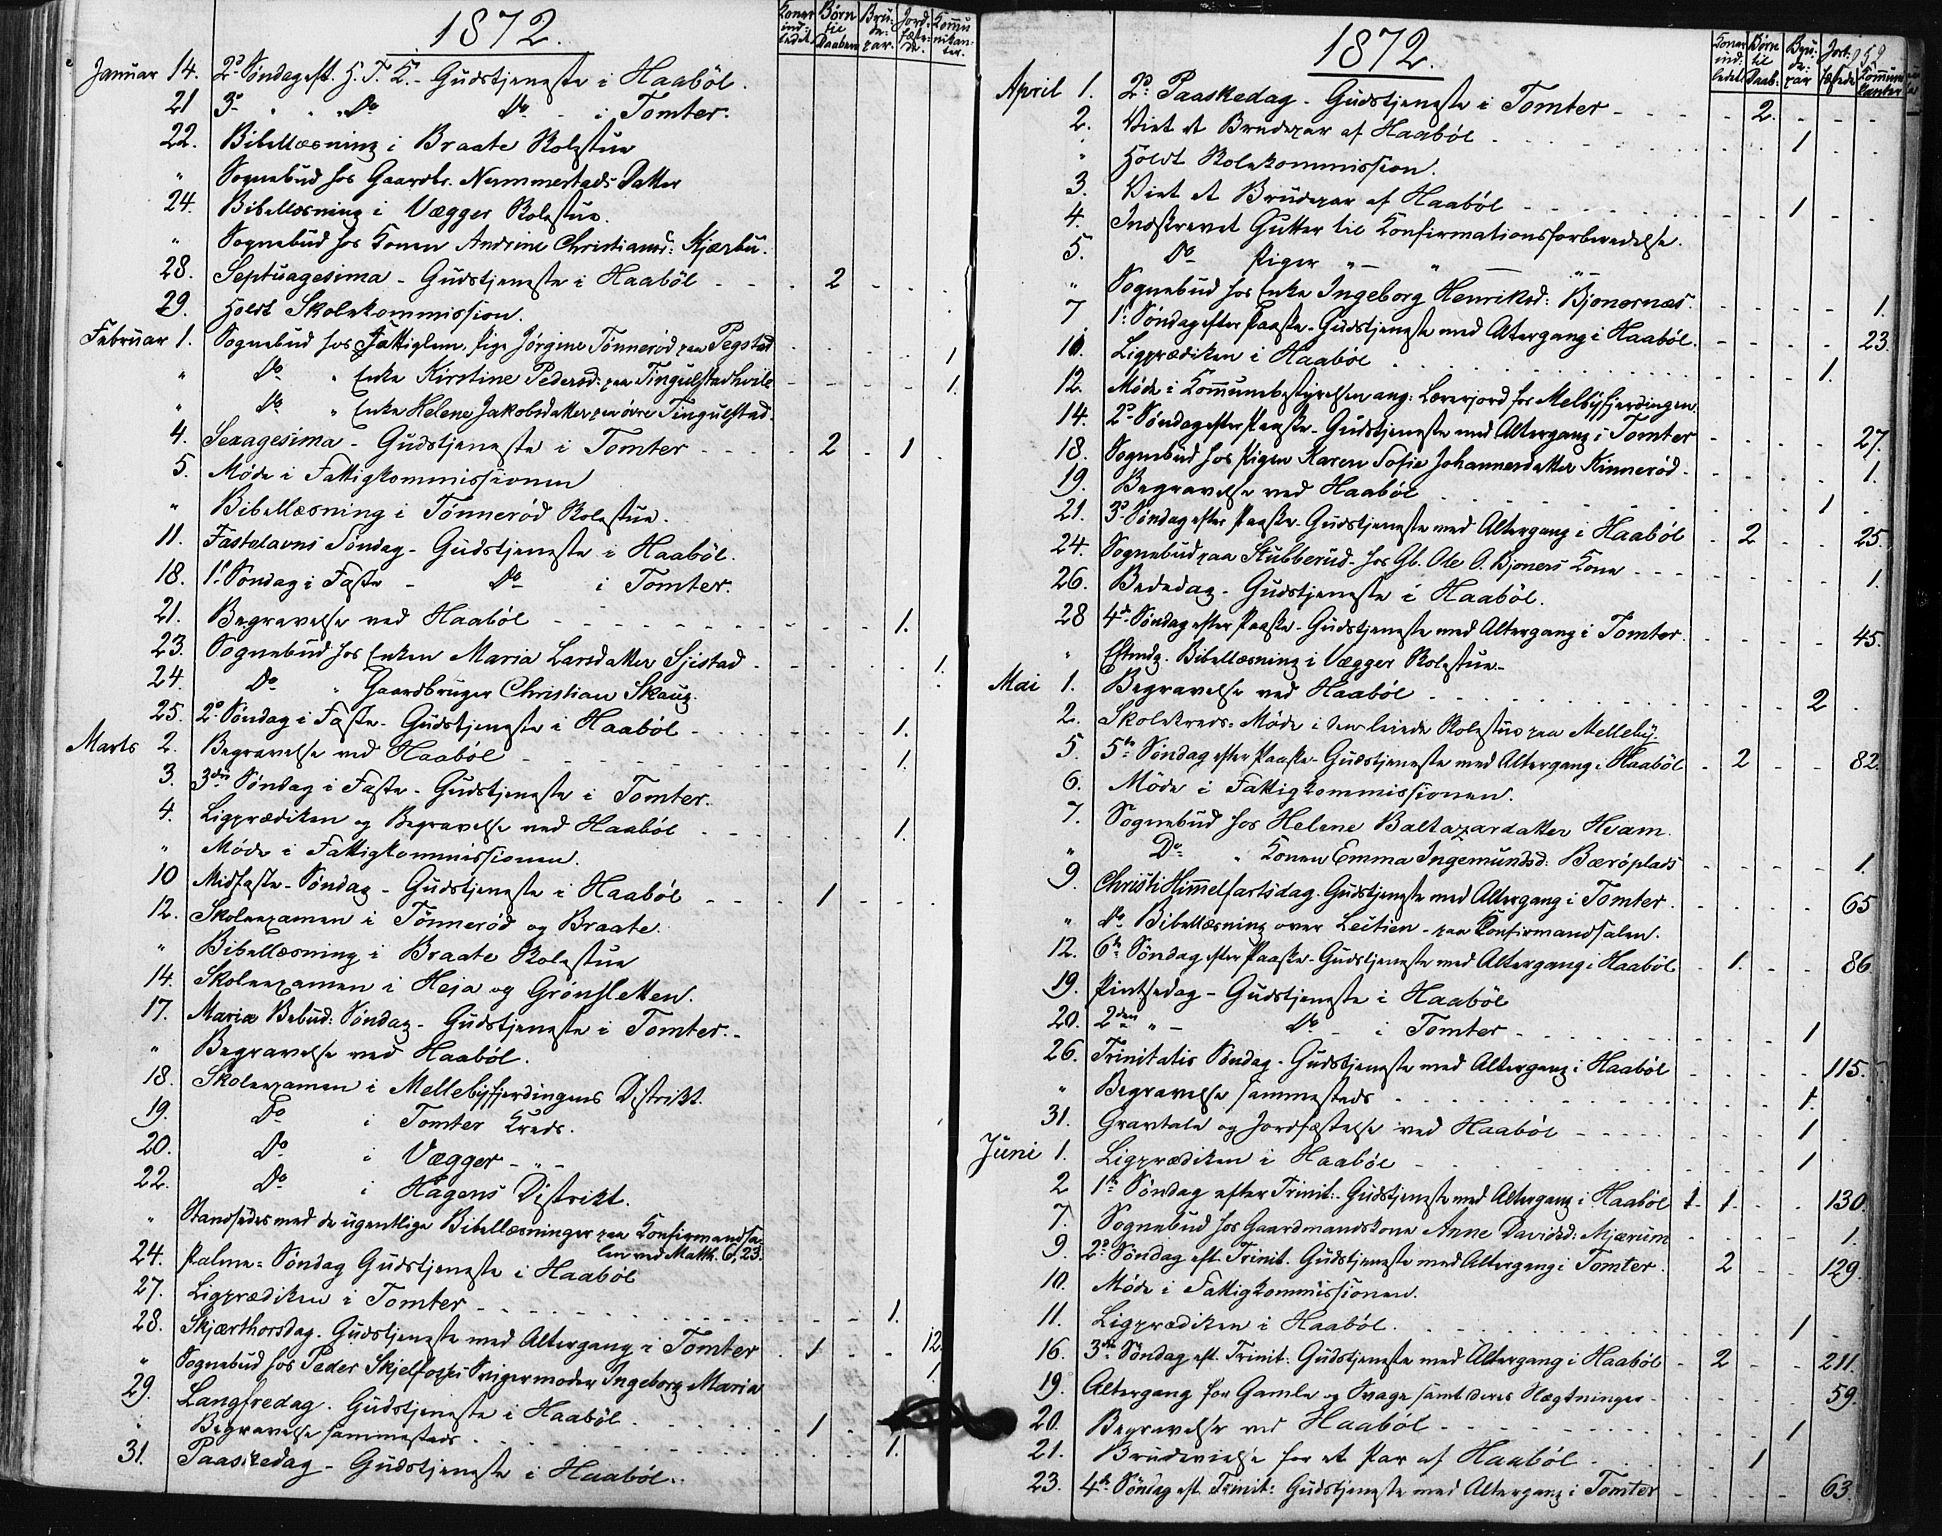 1872.
Koner indledet. Børn til Daaben Brudepar. Jordfæstede. Kommunikanter.
Januar 14. 2d Søndag eft. H. T. K. - Gudstjeneste i Haaböl.
21 3d " " Do Do - i Tomter.
22. Bibellæsning i Braate Skolestue
" Sognebud hos Gaardbr. Nummestads Datter
24. Bibellæsning i Vægger Skolestue.
" Sognebud hos Konen Andrine Christiansd: Kjærbu.
28. Septuagesima - Gudstjeneste i Haaböl - - - 2 - - -
29. Holdt Skolekommission.
Februar 1. Sognebud hos Fattiglem, Pige Jørgine Tønnerød paa Pegstad 1.
" Do " Enke Kirstine Pedersd: paa Tingulstadhvile - - - - 1.
" Do " Enke Helene Jakobsdatter paa övre Tingulstad.
4. Sexagesima - Gudstjeneste i Tomter - - - - 2 - 1 -
5. Møde i Fattigkommissionen
" Bibellæsning i Tönnerød Skolestue.
11. Fastelavns Søndag - Gudstjeneste i Haaböl.
18. 1st Søndag i Faste - Do i Tomter.
21. Begravelse ved Haaböl - - - - - - - 1.
23. Sognebud hos Enken Maria Larsdatter Sjistad - - - - 1.
24. Do " Gaardbruger Christian Skaug.
25. 2d Søndag i Faste - Gudstjeneste i Haaböl - - - - 1.
Marts 2. Begravelse ved Haaböl - - - - - - 1.
3. 3die Søndag i Faste - Gudstjeneste i Tomter.
4. Ligprædiken og Begravelse ved Haaböl - - - - 1.
" Møde i Fattigkommissionen.
10 Midfaste-Søndag - Gudstjeneste i Haaböl - - - 1 - - -
12. Skoleexamen i Tönnerød og Braate.
" Bibellæsning i Braate Skolestue
14. Skoleexamen i Heja og Grönsletten.
17. Mariæ Bebud: Søndag - Gudstjeneste i Tomter. -
" Begravelse ved Haaböl.
18. Skoleexamen i Mellebyfjerdingens Distrikt.
19. Do i Tomter Kreds.
20. Do i Vægger - " -
22. Do i Hagens Distrikt.
" Standsedes med de ugentlige Bibellæsninger paa Konfirmandsa-
len ved Matth. 6, 23.
24. Palme-Søndag Gudstjeneste i Haaböl
27. Ligprædiken i Tomter - - - - - - - 1.
28. Skjærthorsdag. Gudstjeneste med Altergang i Tomter - 1 - - 12
" Sognebud hos Peder Skjelfoss's Svigermoder Ingeborg Maria 1.
29. Langfredag. Gudstjeneste i Haaböl - - - - 1 - -
" Begravelse sammesteds - - - - - - 1.
31. Paaskedag - Gudstjeneste i Haaböl.
1872.
Koner indledet. Børn til Daab. Brudepar Jordfæstede Kommunikanter
April 1. 2d Paaskedag - Gudstjeneste i Tomter - - - - 2. - - -
2. Viet et Brudepar af Haaböl - - - - - 1 - -
" Holdt Skolekommission.
3. Viet et Brudepar af Haaböl - - - - - 1 - -
4. Indskrevet Gutter til Konfirmationsforberedelse.
5. Do Piger " - " - " -
" Sognebud hos Enke Ingeborg Henriksd: Bjonernæs. - - - - 1.
7 1st Søndag efter Paaske - Gudstjeneste med Altergang i Haaböl. - - - - 23.
10. Ligprædiken i Haaböl - - - - - - 1.
12. Møde i Kommunebestyrelsen ang: Lærerjord for Mellbyfjerdingen.
14. 2d Søndag efter Paaske - Gudstjeneste med Altergang i Tomter - - - - 27.
18. Sognebud hos Pigen Karen Sofie Johannesdatter Kinnerød - - - - 1.
19. Begravelse ved Haaböl - - - - - 1 -
21. 3d Søndag efter Paaske - Gudstjeneste med Altergang i Haaböl - 2 - - 25.
24. Sognebud paa Stubberud - hos Gb. Ole O. Bjoners Kone - - - 1.
26. Bededag - Gudstjeneste i Haaböl.
28 4de Søndag efter Paaske - Gudstjeneste med Altergang i Tomter. - - - - 45.
" Eftmdg. Bibellæsning i Vægger Skolestue. -
Mai 1. Begravelse ved Haaböl - - - - - - 2 .
2. Skolekreds-Møde i den leiede Skolestue paa Melleby.
5. 5te Søndag efter Paaske - Gudstjeneste med Altergang i Haaböl - 2 - - 82.
6. Møde i Fattigkommissionen.
7. Sognebud hos Helene Baltazardatter Hvam.
" Do " Konen Emma Ingemundsd: Bæröplads - - - - 1.
9. Christi Himmelfartsdag. Gudstjeneste med Altergang i Tomter. - - - - 65
" do Bibellæsning over Lectien - paa Konfirmandsalen.
12. 6te Søndag efter Paaske - Gudstjeneste med Altergang i Haaböl - 1. - - 86
19. Pintsedag - Gudstjeneste i Haaböl
20. 2den " - do - i Tomter - - - - - 1
26. Trinitatis Søndag - Gudstjeneste med Altergang i Haaböl - - - - 115.
" Begravelse sammesteds - - - - - - 1.
31. Gravtale og Jordfæstelse ved Haaböl - - - - 1 .
Juni 1. Ligprædiken i Haaböl - - - - - - 1
2 1ste Søndag efter Trinit: - Gudstjeneste med Altergang i Haaböl 1 1 - - 130.
7. Sognebud hos Gaardmandskone Anne Davidsd: Mjærum - - - - 1.
9 2d Søndag eft. Trinit. Gudstjeneste med Altergang i Tomter. - 2 - - 129.
10. Møde i Fattigkommissionen.
11. Ligprædiken i Haaböl. - - - - - - 1 -
16. 3die Søndag eft. Trinit: Gudstjeneste med Altergang i Haaböl - 2 - - 211.
19. Altergang for Gamle og Svage samt deres Slægtninger - - - - 59.
20. Begravelse ved Haaböl - - - - - - 1
21. Brudevielse for et Par af Haaböl - - - 1
23. 4de Søndag eft. Trinit: Gudstjeneste med Altergang i Tomter - - - - 63.